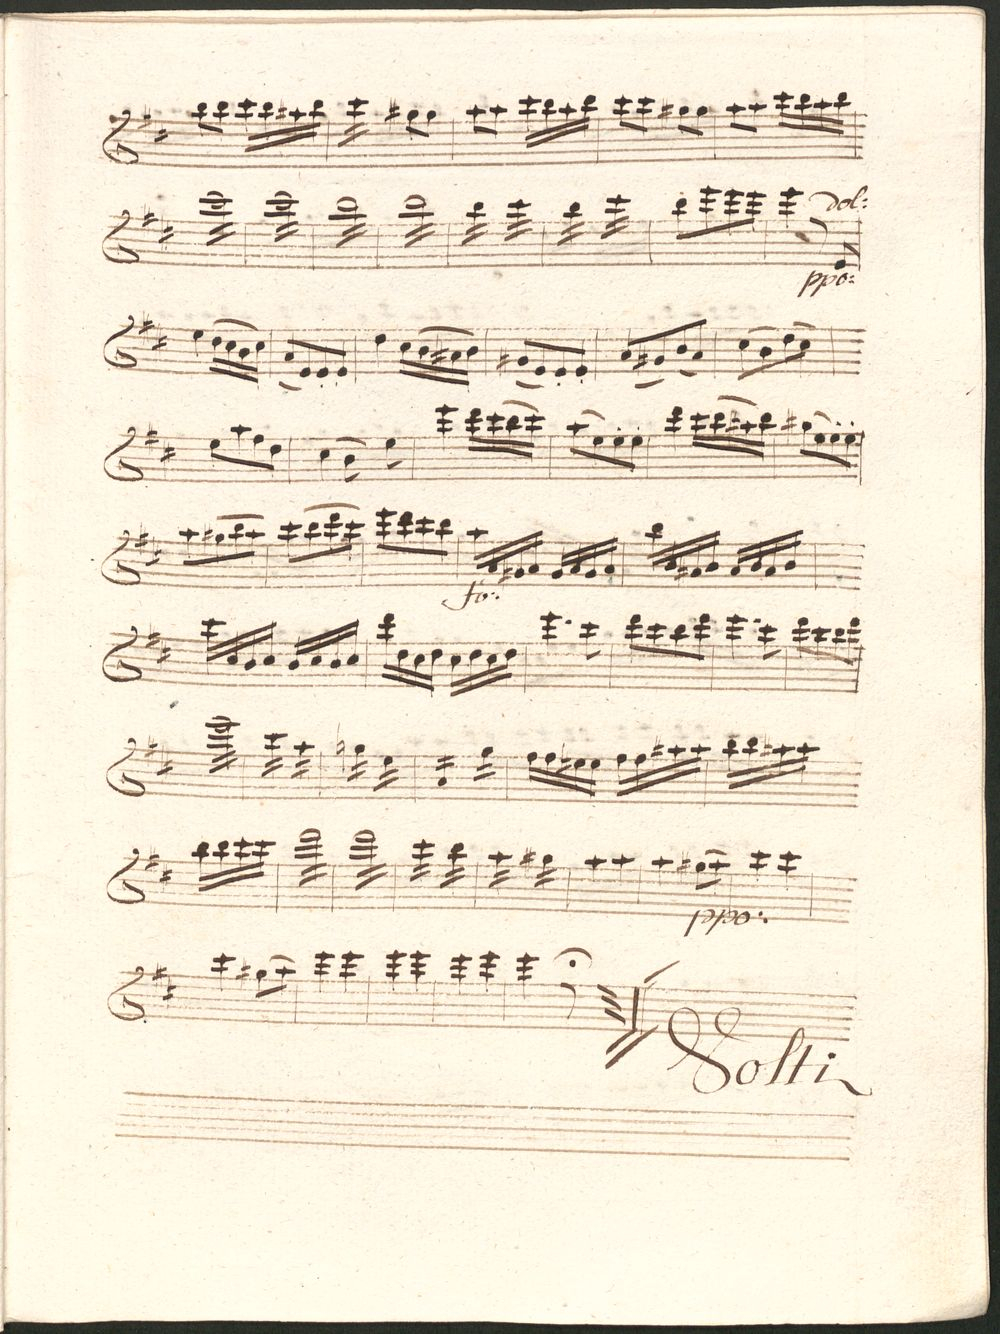 dol:
ppo:
fo:
ppo:
Volti